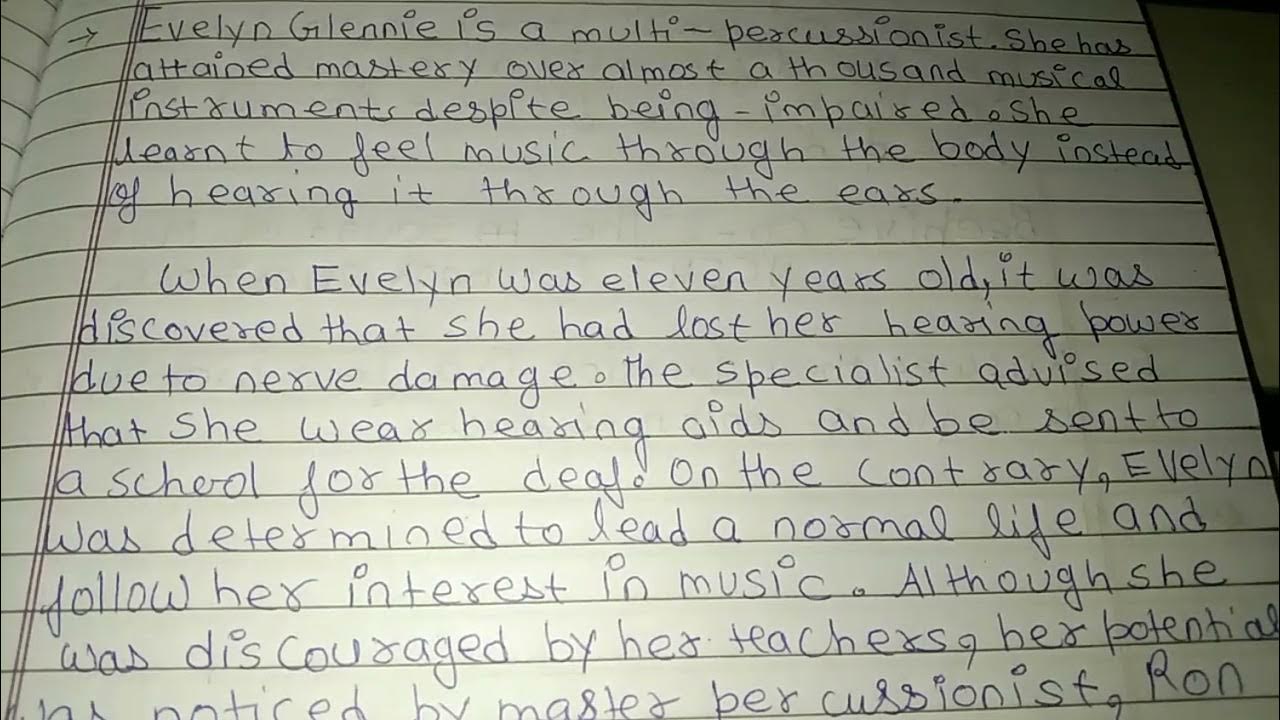 → Evelyn Glennie is a multi-percussionist. She has
attained mastery over almost a thousand musical
instruments despite being - impaired. She
learnt to feel music through the body instead
of hearing it through the ears.
When Evelyn was eleven years old, it was
discovered that she had lost her hearing power
due to nerve damage. The specialist advised
that she wear hearing aids and be sent to
a school for the deaf. On the contrary, Evelyn
was determined to lead a normal life and
follow her interest in music. Although she
was discouraged by her teachers, her potential
noticed by master percussionist, Ron